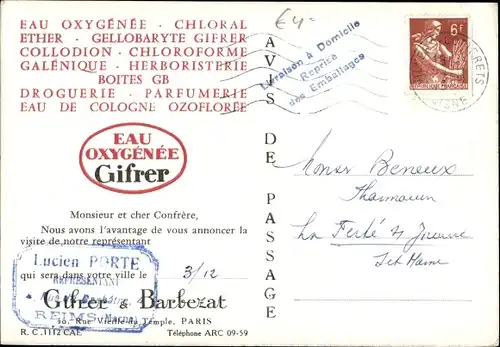 EAU OXYGÉNÉE - CHLORAL
ETHER - GELLOBARYTE GIFRER
COLLODION - CHLOROFORME
GALÉNIQUE - HERBORISTERIE
BOITES GB
DROGUERIE - PARFUMERIE
EAU DE COLOGNE OZOFLORÉE
EAU
OXYGÉNÉE
Gifrer
Monsieur et cher Confrère,
Nous avons l'avantage de vous annoncer la
visite de notre représentant
Lucien PORTE
REPRÉSENTANT
REIMS (Marne)
qui sera dans votre ville le 3/12
Gifrer & Barbezat
10, Rue Vieille du Temple, PARIS
R. C. 1112 CAE Téléphone ARC 09-59
AVIS DE PASSAGE
€4-
Livraison à Domicile
Reprise
des Emballages
6f
RÉPUBLIQUE FRANÇAISE
Monsr Beneux
Pharmacien
La Ferté s/ Jouarre
Set Marne